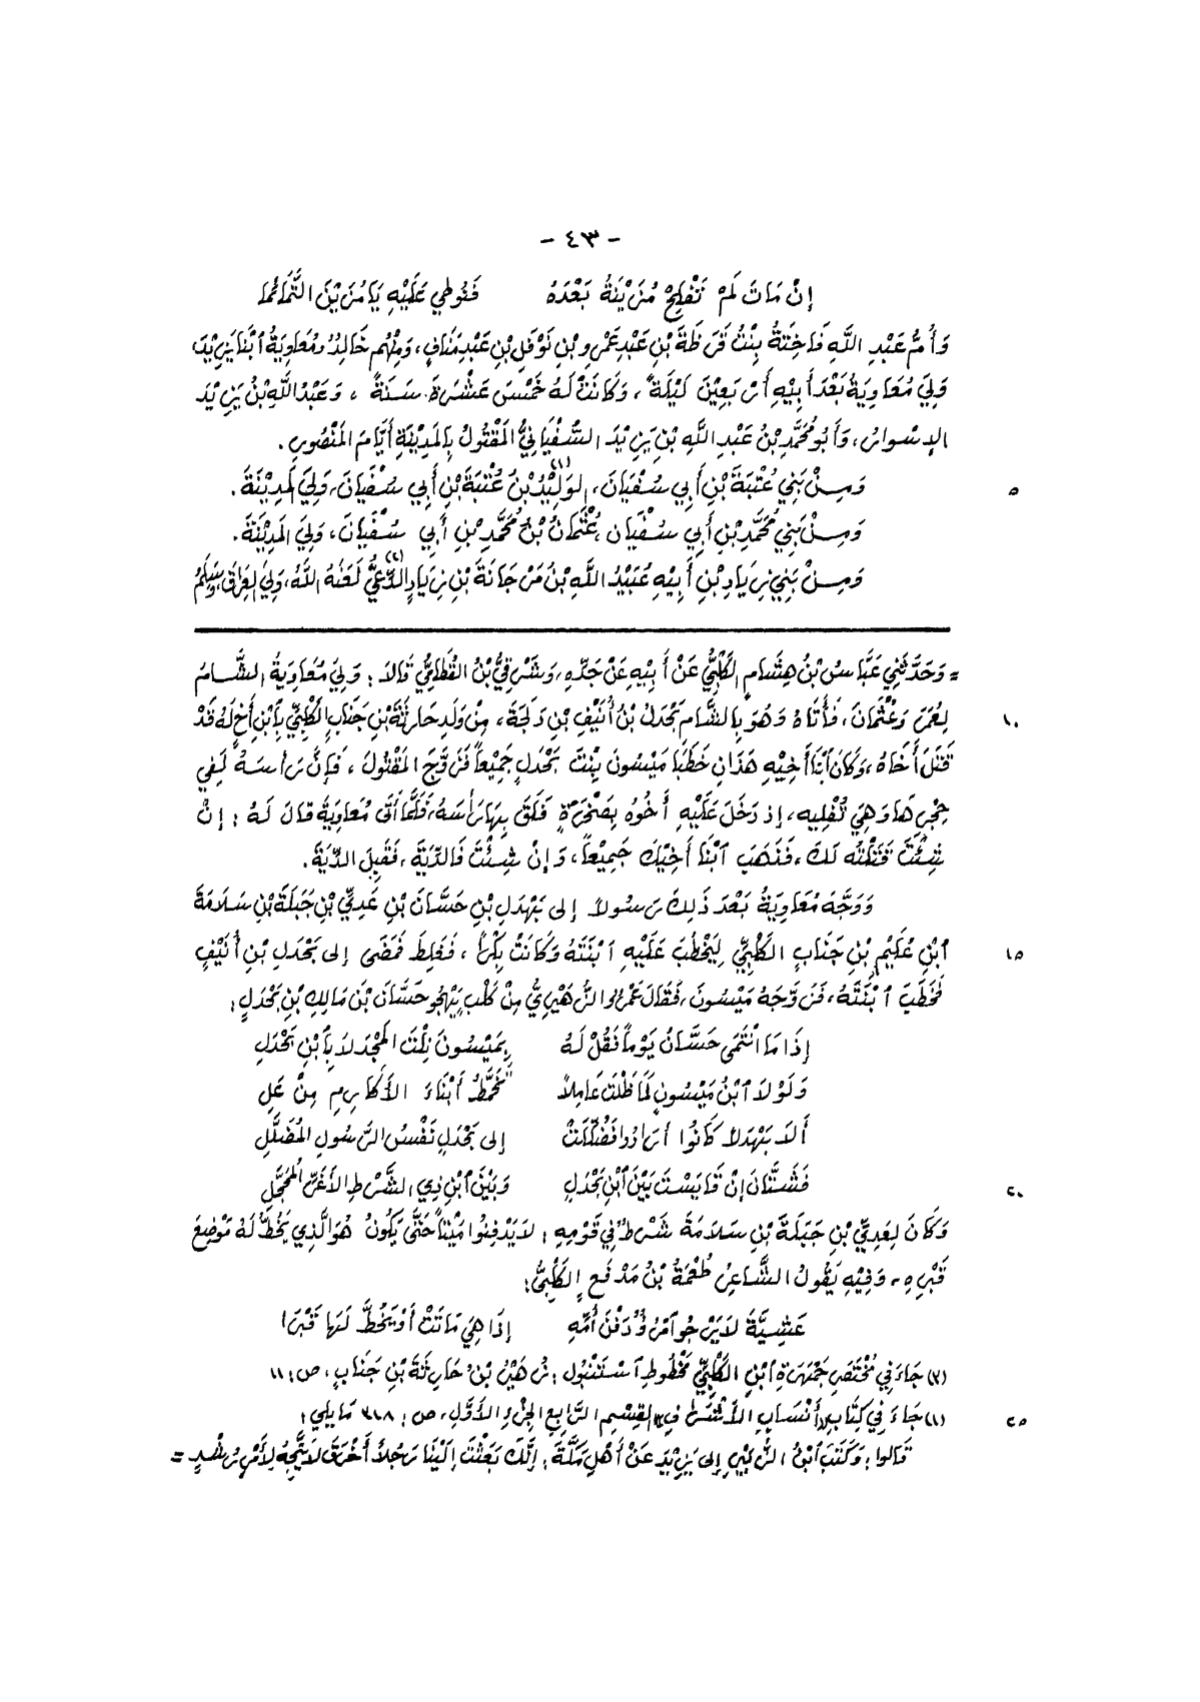 - ٤٣ -
إِنْ مَاتَ لَمْ تُفْلِحْ مُزَيْنَةُ بَعْدَهُ فَنُوطِي عَلَيْهِ يَا مُزَيْنَ التَّمَائِمَا
وَأُمُّ عَبْدِ اللَّهِ فَاخِتَةُ بِنْتُ قَرَظَةَ بْنِ عَبْدِ عَمْرِو بْنِ نَوْفَلِ بْنِ عَبْدِ مَنَافٍ، وَمِنْهُم خَالِدٌ وَمُعَاوِيَةُ ٱبْنَا يَزِيْدَ،
وَلِيَ مُعَاوِيَةُ بَعْدَ أَبِيْهِ أَرْبَعِيْنَ لَيْلَةً، وَكَانَتْ لَهُ خَمْسَ عَشْرَةَ سَنَةً، وَعَبْدُ اللَّهِ بْنُ يَزِيْدَ
الإِسْوَارُ، وَأَبُو مُحَمَّدِ بْنُ عَبْدِ اللَّهِ بْنِ يَزِيْدَ السُّفْيَانِيُّ المَقْتُولُ بِالمَدِيْنَةِ أَيَّامَ المَنْصُورِ.
وَمِنْ بَنِي عُتْبَةَ بْنِ أَبِي سُفْيَانَ، الوَلِيْدُ (١) بْنُ عُتْبَةَ بْنِ أَبِي سُفْيَانَ، وَلِيَ المَدِيْنَةَ. ٥
وَمِنْ بَنِي مُحَمَّدِ بْنِ أَبِي سُفْيَانَ، عُثْمَانُ بْنُ مُحَمَّدِ بْنِ أَبِي سُفْيَانَ، وَلِيَ المَدِيْنَةَ.
وَمِنْ بَنِي زِيَادِ بْنِ أَبِيْهِ عُبَيْدُ اللَّهِ بْنُ مَرْجَانَةَ بْنِ زِيَادٍ الدَّعِيُّ (٢) لَعَنَهُ اللَّهُ، وَلِيَ العِرَاقَ، وَسَلْمُ
= وَحَدَّثَنِي عَبَّاسُ بْنُ هِشَامٍ الكَلْبِيُّ عَنْ أَبِيْهِ عَنْ جَدِّهِ، وَشَرْقِيُّ بْنُ القُطَامِيُّ قَالَا: وَلِيَ مُعَاوِيَةُ الشَّامَ
لِعُمَرَ وَعُثْمَانَ، فَأَتَاهُ وَهُوَ بِالشَّامِ بَحْدَلُ بْنُ أُنَيْفِ بْنِ دَلَجَةَ، مِنْ وَلَدِ حَارِثَةَ بْنِ جَنَابٍ الكَلْبِيِّ بِٱبْنِ أَخٍ لَهُ قَدْ ١٠
قَتَلَ أَخَاهُ، وَكَانَ ٱبْنَا أَخِيْهِ هَذَانِ خَطَبَا مَيْسُونَ بِنْتَ بَحْدَلٍ جَمِيْعاً فَزَوَّجَ المَقْتُولَ، فَإِنَّ رَأْسَهُ لَفِي
حِجْرِهَا وَهِيَ تُفْلِيهِ، إِذ دَخَلَ عَلَيْهِ أَخُوهُ بِصَخْرَةٍ فَلَقَ بِهَا رَأْسَهُ، فَلَمَّا أَتَى مُعَاوِيَةَ قَالَ لَهُ: إِنْ
شِئْتَ قَتَلْتُه لَكَ، فَذَهَبَ ٱبْنَا أَخِيْكَ جَمِيْعاً، وَإِنْ شِئْتَ فَالدِّيَةَ، فَقَبِلَ الدِّيَةَ.
وَوَجَّهَ مُعَاوِيَةُ بَعْدَ ذَلِكَ رَسُولاً إِلى بَهْدَلِ بْنِ حَسَّانَ بْنِ عَدِيِّ بْنِ جَبَلَةَ بْنِ سَلَامَةَ
ٱبْنِ عُلَيْمِ بْنِ جَنَابٍ الكَلْبِيِّ لِيَخْطُبَ عَلَيْهِ ٱبْنَتَهُ وَكَانَتْ بِكْراً، فَغَلِطَ فَمَضَى إِلى بَحْدَلِ بْنِ أُنَيْفٍ ١٥
فَخَطَبَ ٱبْنَتَهُ، فَزَوَّجَهُ مَيْسُونَ، فَقَالَ عَمْرُو الزُّهَيْرِيُّ مِنْ كَلْبٍ يَهْجُو حَسَّانَ بْنَ مَالِكِ بْنِ بَحْدَلٍ:
إِذَا مَا ٱنْتَمَى حَسَّانُ يَوْماً فَقُلْ لَهُ بِمَيْسُونَ نِلْتَ المَجْدَ لَا بِٱبْنِ بَحْدَلِ
وَلَوْلَا ٱبْنُ مَيْسُونٍ لَمَا ظَلْتَ عَامِلاً تَخَمَّطُ أَبْنَاءَ الأَكَارِمِ مِنْ عَلِ
أَلَا بَهْدَلاً كَانُوا أَرَادُوا فَضُلِّلَتْ إِلى بَحْدَلٍ نَفْسُ الرَّسُولِ المُضَلَّلِ
فَشَتَّانَ إِنْ قَايَسْتَ بَيْنَ ٱبْنِ بَحْدَلٍ وَبَيْنَ ٱبْنِ ذِي الشَّرْطِ الأَغَرِّ المُحَجَّلِ ٢٠
وَكَانَ لِعَدِيِّ بْنِ جَبَلَةَ بْنِ سَلَامَةَ شَرْطٌ فِي قَوْمِهِ: لَا يَدْفِنُوا مَيْتاً حَتَّى يَكُونُ هُوَ الَّذِي يَخُطُّ لَهُ مَوْضِعَ
قَبْرِهِ، وَفِيْهِ يَقُولُ الشَّاعِرُ طُعْمَةُ بْنُ مَدْفَعٍ الكَلْبِيُّ:
عَشِيَّةَ لَا يَرْجُو ٱمْرُؤٌ دَفْنَ أُمِّهِ إِذَا هِيَ مَاتَتْ أَوْ يَخُطَّ لَهَا قَبْرَا
(٣) جَاءَ فِي مُخْتَصَرِ جَمْهَرَةِ ٱبْنِ الكَلْبِيِّ مَخْطُوطِ ٱسْتَنْبُول: زُهَيْرُ بْنُ حَارِثَةَ بْنِ جَنَابٍ، ص: ١١
(١) جَاءَ فِي كِتَابِ أَنْسَابِ الأَشْرَافِ القِسْمِ الرَّابِعِ الجُزْءِ الأَوَّلِ، ص: ٣١٨ مَا يلي: ٢٥
قَالوا: وَكَتَبَ ٱبْنُ الزُّبَيْرِ إِلى يَزِيْدَ عَنْ أَهْلِ مَكَّةَ: إِنَّكَ بَعَثْتَ إِلَيْنَا رَجُلاً أَخْرَقَ لَا يَتَّجِهُ لِأَمْرِ رُشْدٍ =